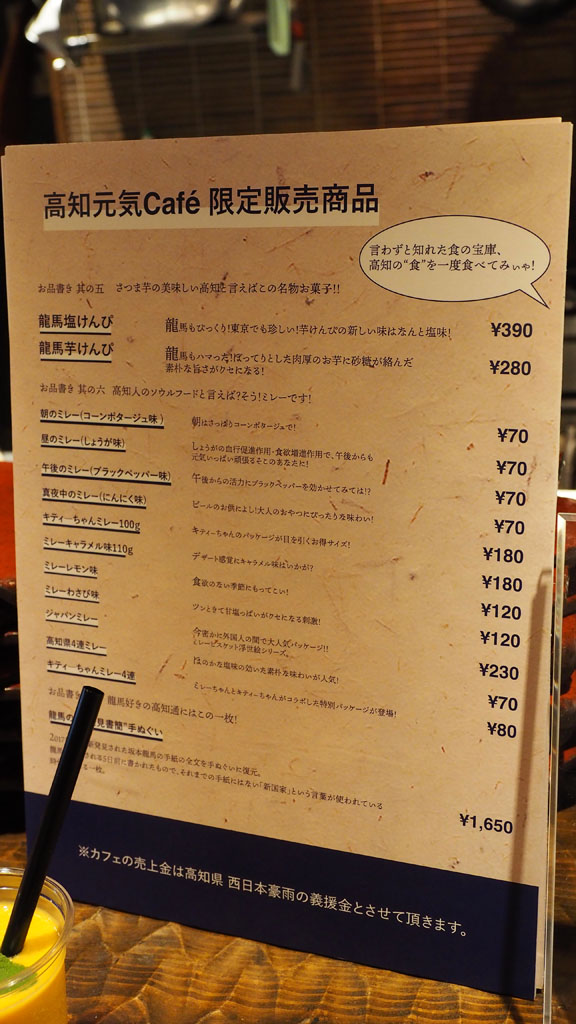 高知元気Café 限定販売商品
言わずと知れた食の宝庫、
高知の“食”を一度食べてみぃや!
お品書き 其の五 さつま芋の美味しい高知と言えばこの名物お菓子!!
龍馬塩けんぴ 龍馬もびっくり!東京でも珍しい!芋けんぴの新しい味はなんと塩味! ¥390
龍馬芋けんぴ 龍馬もハマった!ぽってりとした肉厚のお芋に砂糖が絡んだ
素朴な旨さがクセになる! ¥280
お品書き 其の六 高知人のソウルフードと言えば?そう!ミレーです!
朝のミレー(コーンポタージュ味) 朝はさっぱりコーンポタージュで! ¥70
昼のミレー(しょうが味) しょうがの血行促進作用・食欲増進作用で、午後からも
元気いっぱい頑張るそこのあなたに! ¥70
午後のミレー(ブラックペッパー味) 午後からの活力にブラックペッパーを効かせてみては!? ¥70
真夜中のミレー(にんにく味) ビールのお供によし!大人のおやつにぴったりな味わい! ¥70
キティーちゃんミレー100g キティーちゃんのパッケージが目を引くお得サイズ! ¥180
ミレーキャラメル味110g デザート感覚にキャラメル味はいかが? ¥180
ミレーレモン味 食欲のない季節にもってこい! ¥120
ミレーわさび味 ツンときて甘塩っぱいがクセになる刺激! ¥120
ジャパンミレー 今密かに外国人の間で大人気パッケージ!!
ミレービスケット浮世絵シリーズ。 ¥230
高知県4連ミレー ほのかな塩味の効いた素朴な味わいが人気! ¥70
キティーちゃんミレー4連 ミレーちゃんとキティーちゃんがコラボした特別パッケージが登場! ¥80
お品書き 龍馬好きの高知通にはこの一枚!
龍馬の 見書簡”手ぬぐい
2017 新発見された坂本龍馬の手紙の全文を手ぬぐいに復元。
龍馬 される5日前に書かれたもので、それまでの手紙にはない「新国家」という言葉が使われている
る一枚。
¥1,650
※カフェの売上金は高知県 西日本豪雨の義援金とさせて頂きます。